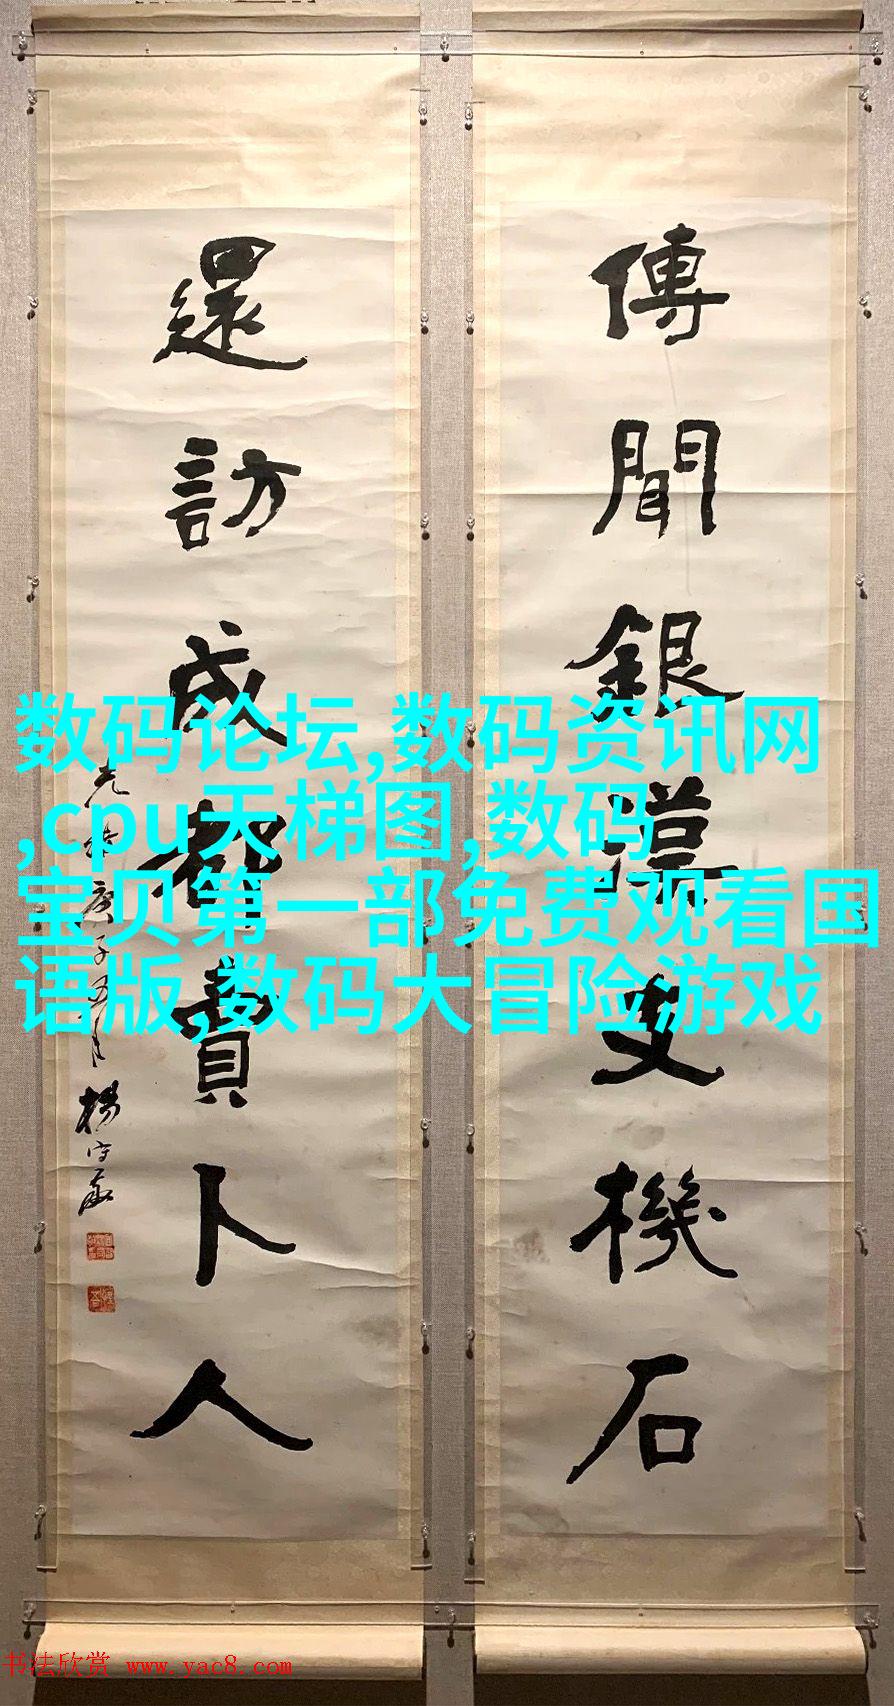 傳聞銀漢支機石
還訪成都賣卜人
光緒庚子五月
楊守敬
数码论坛,数码资讯网
,cpu天梯图,数码
宝贝第一部免费观看国
语版,数码大冒险游戏
书法欣赏 www.yac8.com